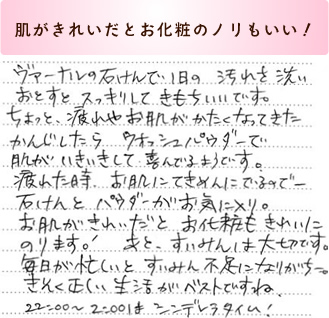 肌がきれいだとお化粧のノリもいい！
ヴァーナルの石けんで1日の汚れを洗い
おとすと スッキリして きもちいいです。
ちょっと、疲れやお肌がかたくなってきた
かんじしたら ウォッシュパウダーで
肌がいきいきして 喜んでるようです。
疲れた時 お肌にてきめんにでるので一
石けんと パウダーがお気に入り。
お肌がきれいだと お化粧もきれいに
のります。! あと、すいみんは大切です。
毎日が忙しいと すいみん不足になりがち〜。
きそく正しい生活がベストですね。
22:00〜2:00は シンデレラタイム!